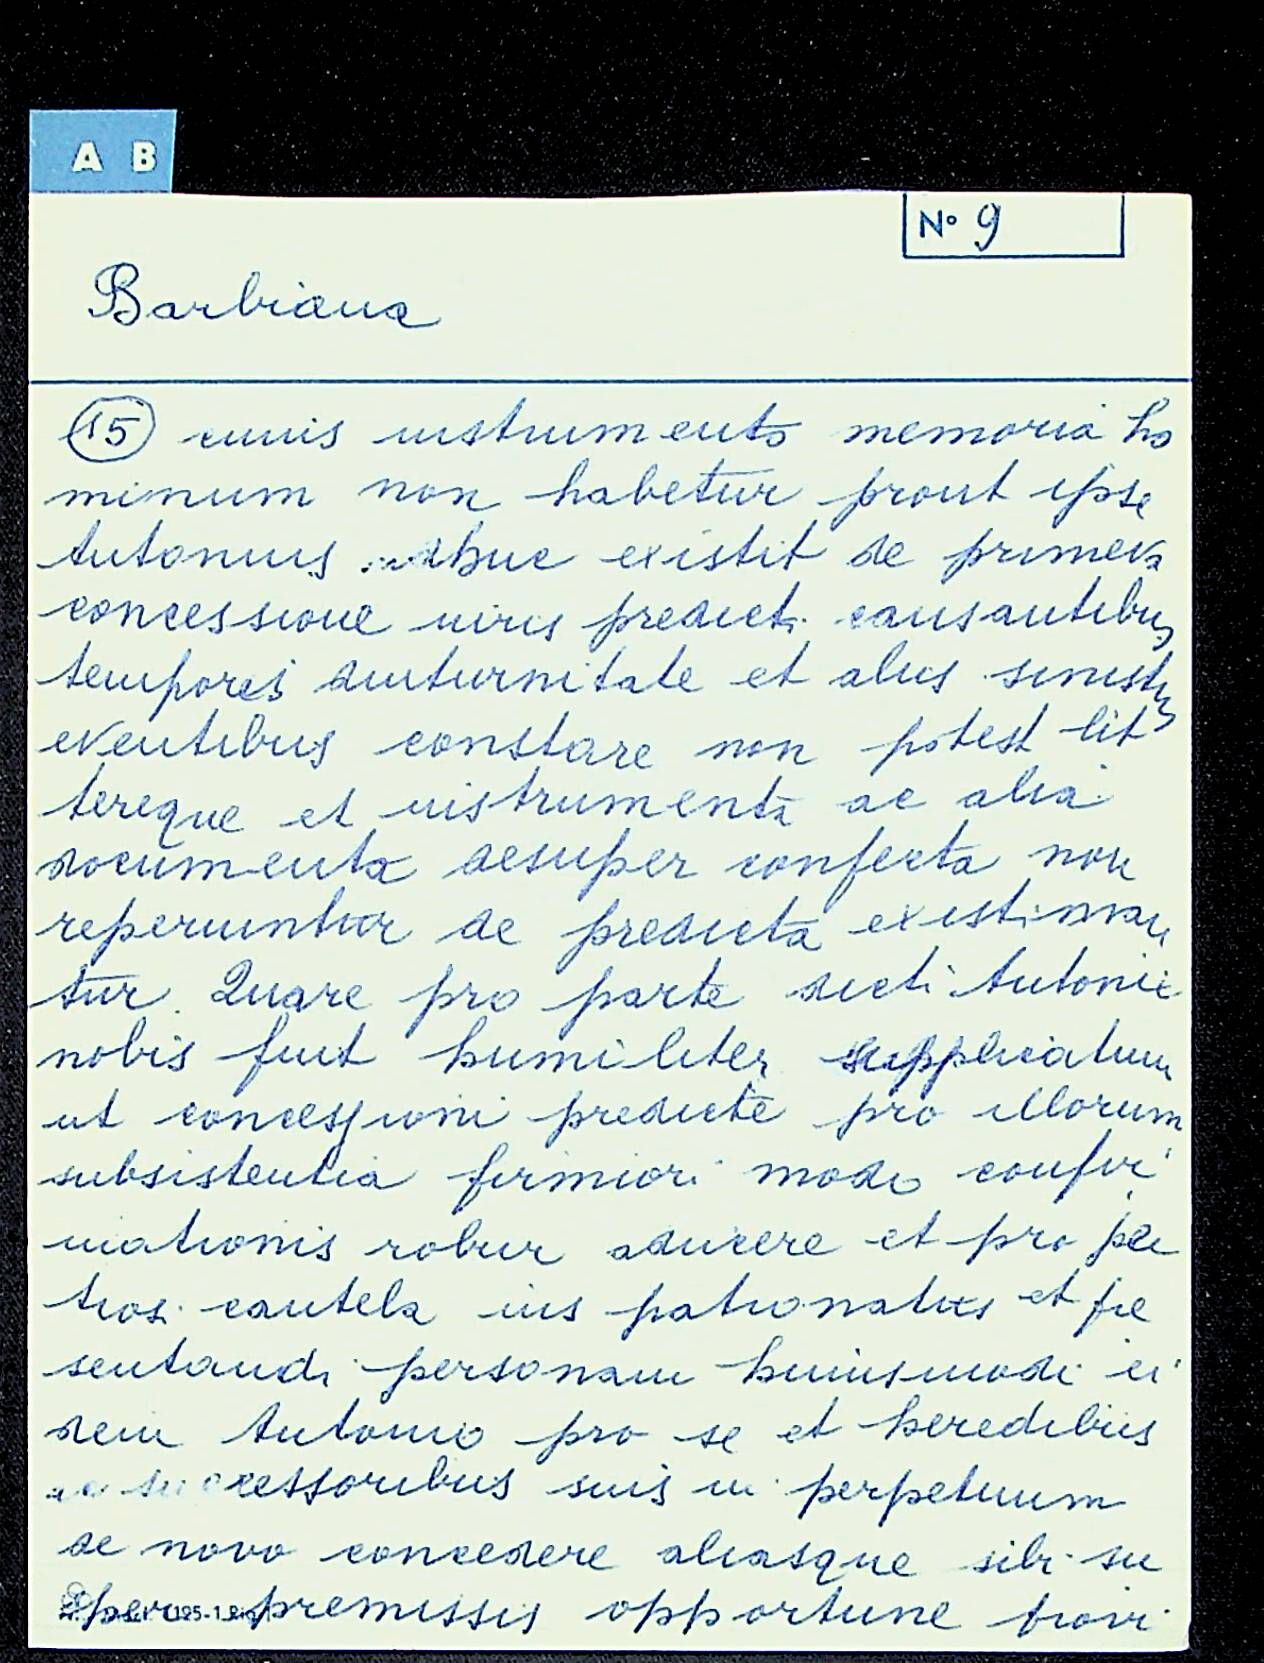 A B
Nº 9
Barbiana
15 cuius instrumento memoria ho
minum non habetur prout ipse
Antonius adhuc existit de primeva
concessione iuris predicti causantibus
temporis diuturnitate et aliis sinistris
eventibus constare non potest lit
tereque et instrumenta ac alia
documenta desuper confecta non
reperiuntur de predicta existiman
tur. Quare pro parte dicti Antonii
nobis fuit humiliter supplicatum
ut concessioni predicte pro illorum
subsistentia firmiori modo confir
mationis robur adiicere et pro po
tiori cautela ius patronatus et pre
sentandi personam huiusmodi ei
dem Antonio pro se et heredibus
ac successoribus suis in perpetuum
de novo concedere aliasque sibi su
per premissis opportune provi